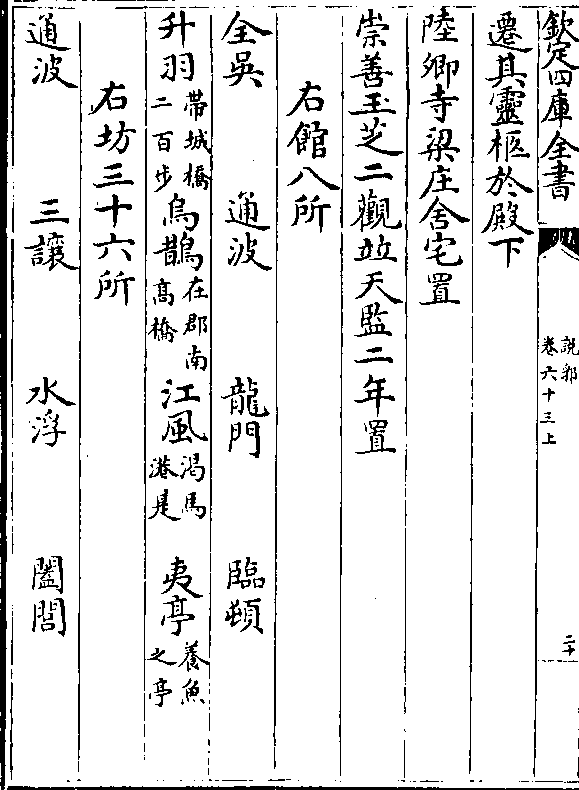 欽定四庫全書
說郛
卷六十三上
二十
遷其靈柩於殿下
陸卿寺梁庄舍宅置
崇善玉芝二觀竝天監二年置
右館八所
全吳 通波 龍門 臨頓
升羽帶城橋二百步 烏鵲在郡南高橋 江風渴馬港是 夷亭養魚之亭
右坊三十六所
通波 三讓 水浮 闔閭